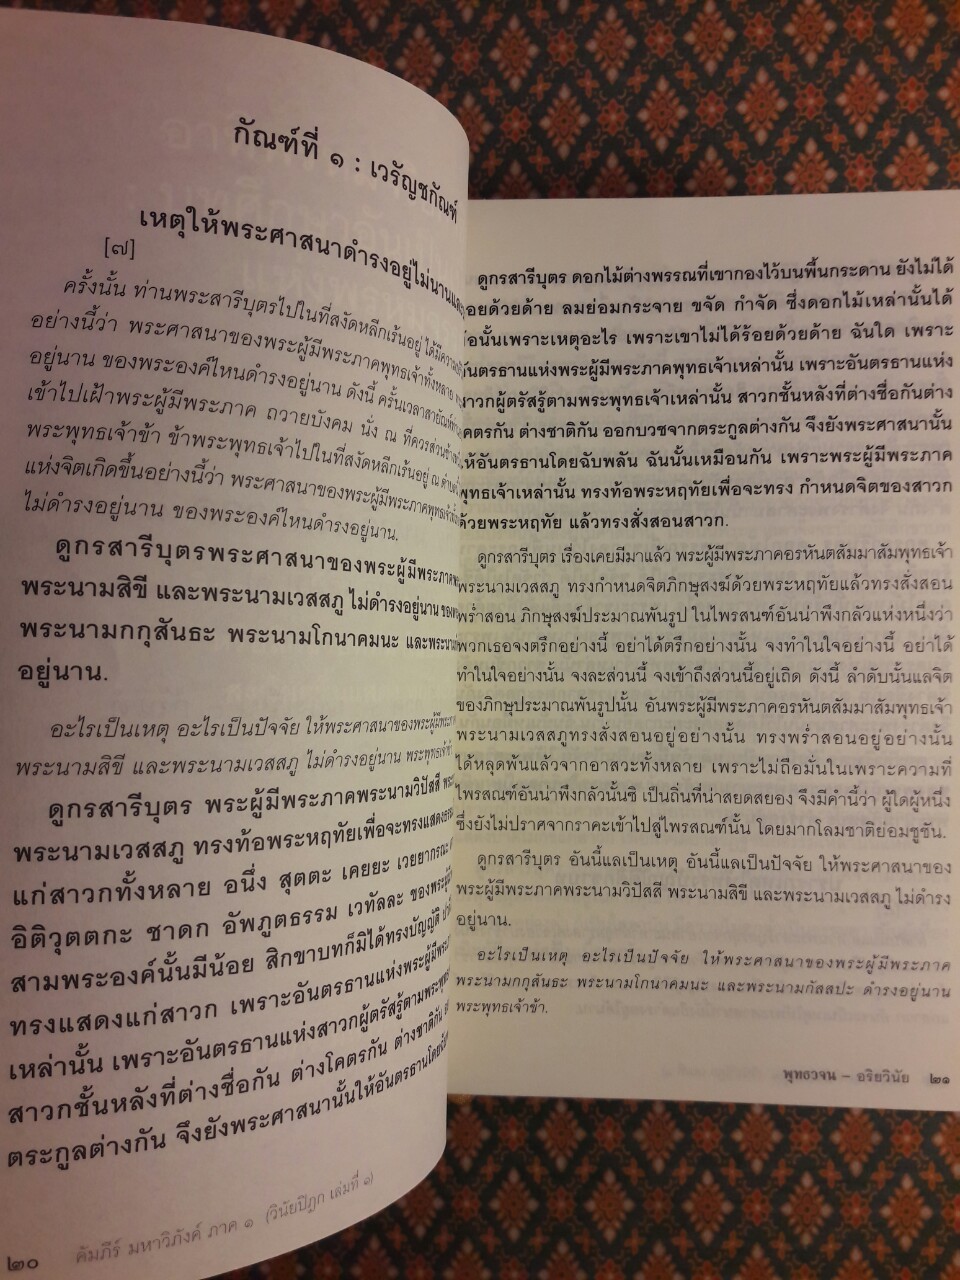 กัณฑ์ที่ ๑ : เวรัญชกัณฑ์
เหตุให้พระศาสนาดำรงอยู่ไม่นานและ
[๗]
ครั้งนั้น ท่านพระสารีบุตรไปในที่สงัดหลีกเร้นอยู่ ได้มีความ
อย่างนี้ว่า พระศาสนาของพระผู้มีพระภาคพุทธเจ้าทั้งหลาย
อยู่นาน ของพระองค์ไหนดำรงอยู่นาน ดังนี้ ครั้นเวลาสายัณห์
เข้าไปเฝ้าพระผู้มีพระภาค ถวายบังคม นั่ง ณ ที่ควรส่วนข้างหนึ่ง
พระพุทธเจ้าข้า ข้าพระพุทธเจ้าไปในที่สงัดหลีกเร้นอยู่ ณ ตำบลนี้
แห่งจิตเกิดขึ้นอย่างนี้ว่า พระศาสนาของพระผู้มีพระภาคพุทธเจ้า
ไม่ดำรงอยู่นาน ของพระองค์ไหนดำรงอยู่นาน.
ดูกรสารีบุตรพระศาสนาของพระผู้มีพระภาค
พระนามสิขี และพระนามเวสสภู ไม่ดำรงอยู่นาน
พระนามกกุสันธะ พระนามโกนาคมนะ และพระนาม
อยู่นาน.
อะไรเป็นเหตุ อะไรเป็นปัจจัย ให้พระศาสนาของพระผู้มีพระภาค
พระนามสิขี และพระนามเวสสภู ไม่ดำรงอยู่นาน พระพุทธเจ้า
ดูกรสารีบุตร พระผู้มีพระภาคพระนามวิปัสสี
พระนามเวสสภู ทรงท้อพระหฤทัยเพื่อจะทรงแสดงธรรม
แก่สาวกทั้งหลาย อนึ่ง สุตตะ เคยยะ เวยยากรณะ
อิติวุตตกะ ชาดก อัพภูตธรรม เวทัลละ ของพระผู้มี
สามพระองค์นั้นมีน้อย สิกขาบทก็มิได้ทรงบัญญัติ
ทรงแสดงแก่สาวก เพราะอันตรธานแห่งพระผู้มีพระ
เหล่านั้น เพราะอันตรธานแห่งสาวกผู้ตรัสรู้ตามพระพุทธ
สาวกชั้นหลังที่ต่างชื่อกัน ต่างโคตรกัน ต่างชาติกัน
ตระกูลต่างกัน จึงยังพระศาสนานั้นให้อันตรธานโดย
๒๐ คัมภีร์ มหาวิภังค์ ภาค ๑ (วินัยปิฎก เล่มที่ ๑)
ดูกรสารีบุตร ดอกไม้ต่างพรรณที่เขากองไว้บนพื้นกระดาน ยังไม่ได้
ร้อยด้วยด้าย ลมย่อมกระจาย ขจัด กำจัด ซึ่งดอกไม้เหล่านั้นได้
ข้อนั้นเพราะเหตุอะไร เพราะเขาไม่ได้ร้อยด้วยด้าย ฉันใด เพราะ
อันตรธานแห่งพระผู้มีพระภาคพุทธเจ้าเหล่านั้น เพราะอันตรธานแห่ง
สาวกผู้ตรัสรู้ตามพระพุทธเจ้าเหล่านั้น สาวกชั้นหลังที่ต่างชื่อกันต่าง
โคตรกัน ต่างชาติกัน ออกบวชจากตระกูลต่างกัน จึงยังพระศาสนานั้น
ให้อันตรธานโดยฉับพลัน ฉันนั้นเหมือนกัน เพราะพระผู้มีพระภาค
พุทธเจ้าเหล่านั้น ทรงท้อพระหฤทัยเพื่อจะทรง กำหนดจิตของสาวก
ด้วยพระหฤทัย แล้วทรงสั่งสอนสาวก.
ดูกรสารีบุตร เรื่องเคยมีมาแล้ว พระผู้มีพระภาคอรหันตสัมมาสัมพุทธเจ้า
พระนามเวสสภู ทรงกำหนดจิตภิกษุสงฆ์ด้วยพระหฤทัยแล้วทรงสั่งสอน
พร่ำสอน ภิกษุสงฆ์ประมาณพันรูป ในไพรสนฑ์อันน่าพึงกลัวแห่งหนึ่งว่า
พวกเธอจงตรึกอย่างนี้ อย่าได้ตรึกอย่างนั้น จงทำในใจอย่างนี้ อย่าได้
ทำในใจอย่างนั้น จงละส่วนนี้ จงเข้าถึงส่วนนี้อยู่เถิด ดังนี้ ลำดับนั้นแลจิต
ของภิกษุประมาณพันรูปนั้น อันพระผู้มีพระภาคอรหันตสัมมาสัมพุทธเจ้า
พระนามเวสสภูทรงสั่งสอนอยู่อย่างนั้น ทรงพร่ำสอนอยู่อย่างนั้น
ได้หลุดพ้นแล้วจากอาสวะทั้งหลาย เพราะไม่ถือมั่นในเพราะความที่
ไพรสณฑ์อันน่าพึงกลัวนั้นซิ เป็นถิ่นที่น่าสยดสยอง จึงมีคำนี้ว่า ผู้ใดผู้หนึ่ง
ซึ่งยังไม่ปราศจากราคะเข้าไปสู่ไพรสณฑ์นั้น โดยมากโลมชาติย่อมชูชัน.
ดูกรสารีบุตร อันนี้แลเป็นเหตุ อันนี้แลเป็นปัจจัย ให้พระศาสนาของ
พระผู้มีพระภาคพระนามวิปัสสี พระนามสิขี และพระนามเวสสภู ไม่ดำรง
อยู่นาน.
อะไรเป็นเหตุ อะไรเป็นปัจจัย ให้พระศาสนาของพระผู้มีพระภาค
พระนามกกุสันธะ พระนามโกนาคมนะ และพระนามกัสสปะ ดำรงอยู่นาน
พระพุทธเจ้าข้า.
พุทธวจน – อริยวินัย ๒๑